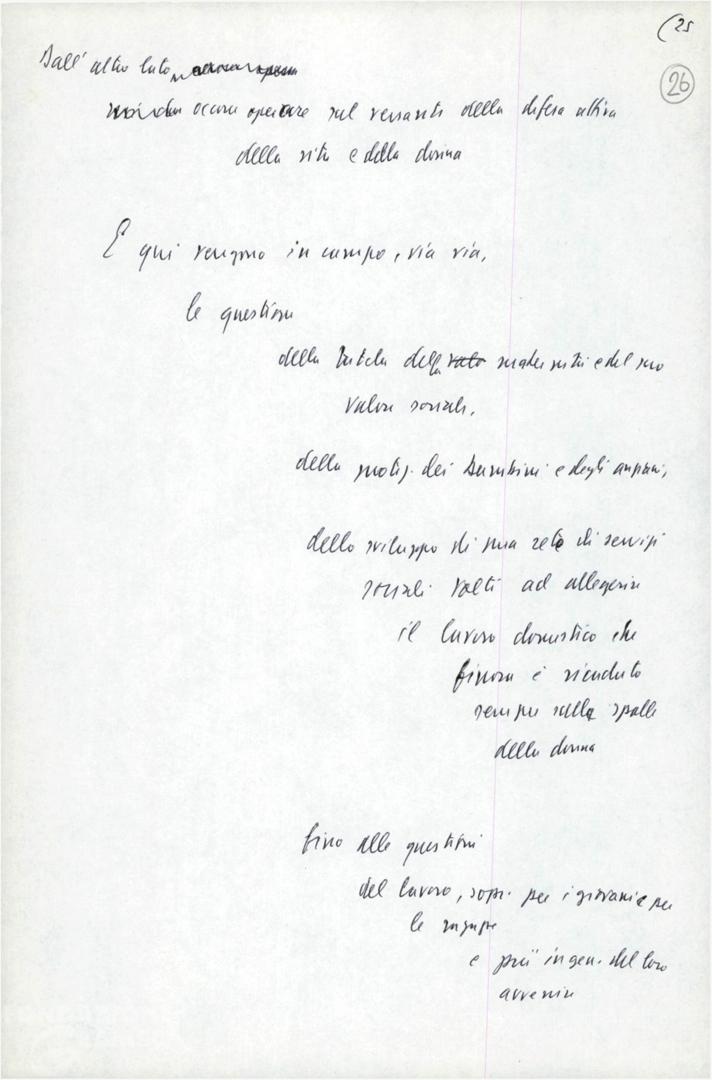 (25
26
Dall'altro lato,
occorre operare sul versante della difesa attiva
della vita e della donna
E qui vengono in campo, via via,
le questioni
della tutela della maternità e del suo
valore sociale,
della protez. dei bambini e degli anziani,
dello sviluppo di una rete di servizi
sociali volti ad alleggerire
il lavoro domestico che
finora è ricaduto
sempre sulle spalle
della donna
fino alle questioni
del lavoro, sopr. per i giovani e per
le ragazze
e più in gen. del loro
avvenire